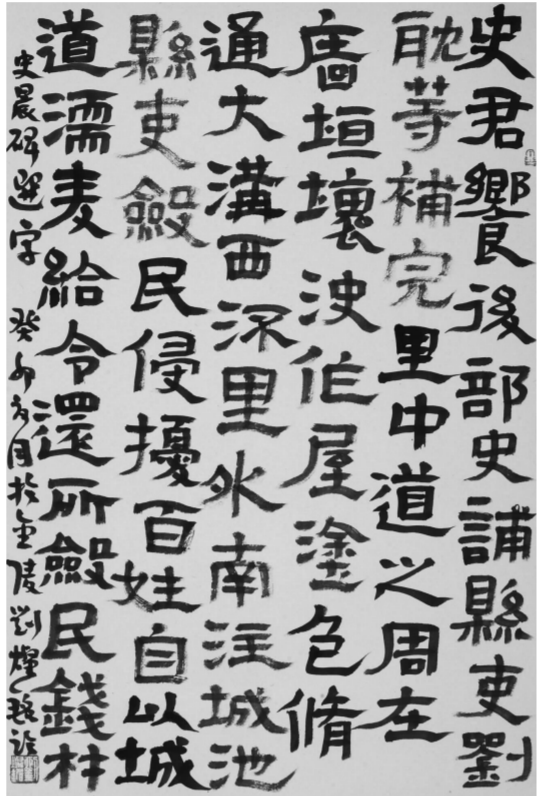 史君饗後部史誧縣吏劉
耽等補完里中道之周左
廧垣壞決作屋塗色脩
通大溝西流里外南注城池
縣吏斂民侵擾百姓自以城
道濡麥給令還所斂民錢材
史晨碑選字 癸卯月於金陵劉燦銘